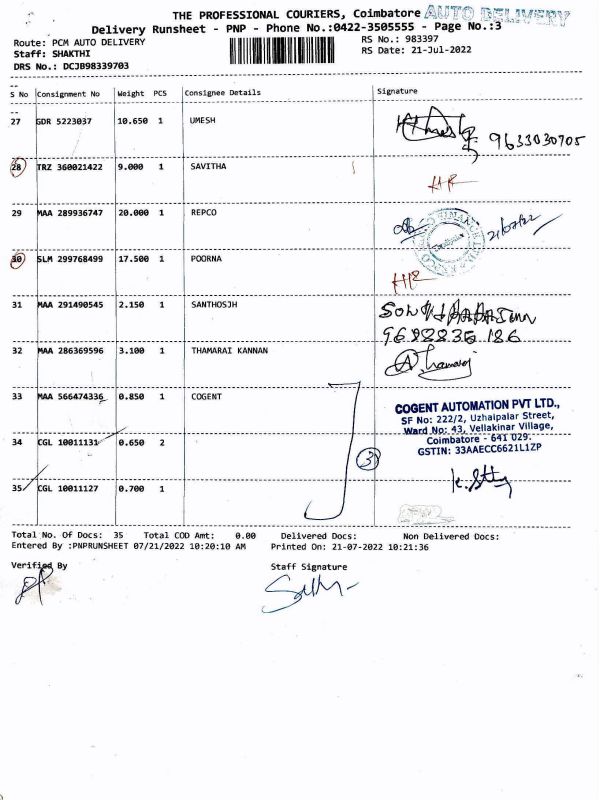 THE PROFESSIONAL COURIERS, Coimbatore AUTO DELIVERY
Delivery Runsheet - PNP - Phone No.:0422-3505555 - Page No.:3
Route: PCM AUTO DELIVERY RS No.: 983397
Staff: SHAKTHI RS Date: 21-Jul-2022
DRS No.: DCJB98339703
S No Consignment No Weight PCS Consignee Details Signature
27 GDR 5223037 10.650 1 UMESH
9633030705
28 TRZ 360021422 9.000 1 SAVITHA
29 MAA 289936747 20.000 1 REPCO 21/07/22
30 SLM 299768499 17.500 1 POORNA
31 MAA 291490545 2.150 1 SANTHOSJH
9688836 186
32 MAA 286369596 3.100 1 THAMARAI KANNAN
33 MAA 566474336 0.850 1 COGENT
COGENT AUTOMATION PVT LTD.,
SF No: 222/2, Uzhaipalar Street,
Ward No: 43, Vellakinar Village,
Coimbatore - 641 029.
GSTIN: 33AAECC6621L1ZP
34 CGL 10011131 0.650 2
3
35 CGL 10011127 0.700 1
Total No. Of Docs: 35 Total COD Amt: 0.00 Delivered Docs: Non Delivered Docs:
Entered By :PNPRUNSHEET 07/21/2022 10:20:10 AM Printed On: 21-07-2022 10:21:36
Verified By Staff Signature